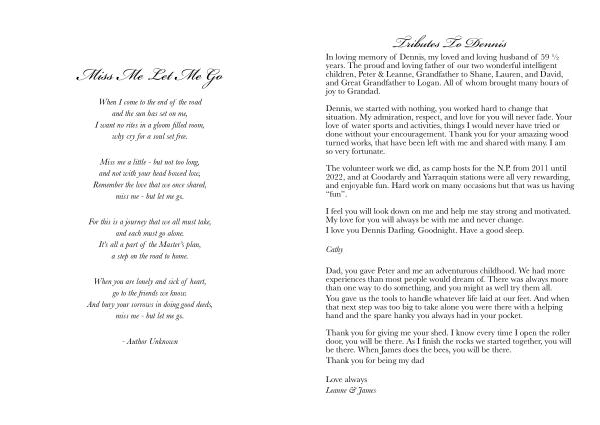 Miss Me Let Me Go
When I come to the end of the road
and the sun has set on me,
I want no rites in a gloom filled room,
why cry for a soul set free.
Miss me a little - but not too long,
and not with your head bowed low,
Remember the love that we once shared,
miss me - but let me go.
For this is a journey that we all must take,
and each must go alone.
It's all a part of the Master's plan,
a step on the road to home.
When you are lonely and sick of heart,
go to the friends we know.
And bury your sorrows in doing good deeds,
miss me - but let me go.
- Author Unknown
Tributes To Dennis
In loving memory of Dennis, my loved and loving husband of 59 ½
years. The proud and loving father of our two wonderful intelligent
children, Peter & Leanne, Grandfather to Shane, Lauren, and David,
and Great Grandfather to Logan. All of whom brought many hours of
joy to Grandad.
Dennis, we started with nothing, you worked hard to change that
situation. My admiration, respect, and love for you will never fade. Your
love of water sports and activities, things I would never have tried or
done without your encouragement. Thank you for your amazing wood
turned works, that have been left with me and shared with many. I am
so very fortunate.
The volunteer work we did, as camp hosts for the N.P. from 2011 until
2022, and at Coodardy and Yarraquin stations were all very rewarding,
and enjoyable fun. Hard work on many occasions but that was us having
“fun”.
I feel you will look down on me and help me stay strong and motivated.
My love for you will always be with me and never change.
I love you Dennis Darling. Goodnight. Have a good sleep.
Cathy
Dad, you gave Peter and me an adventurous childhood. We had more
experiences than most people would dream of. There was always more
than one way to do something, and you might as well try them all.
You gave us the tools to handle whatever life laid at our feet. And when
that next step was too big to take alone you were there with a helping
hand and the spare hanky you always had in your pocket.
Thank you for giving me your shed. I know every time I open the roller
door, you will be there. As I finish the rocks we started together, you will
be there. When James does the bees, you will be there.
Thank you for being my dad
Love always
Leanne & James